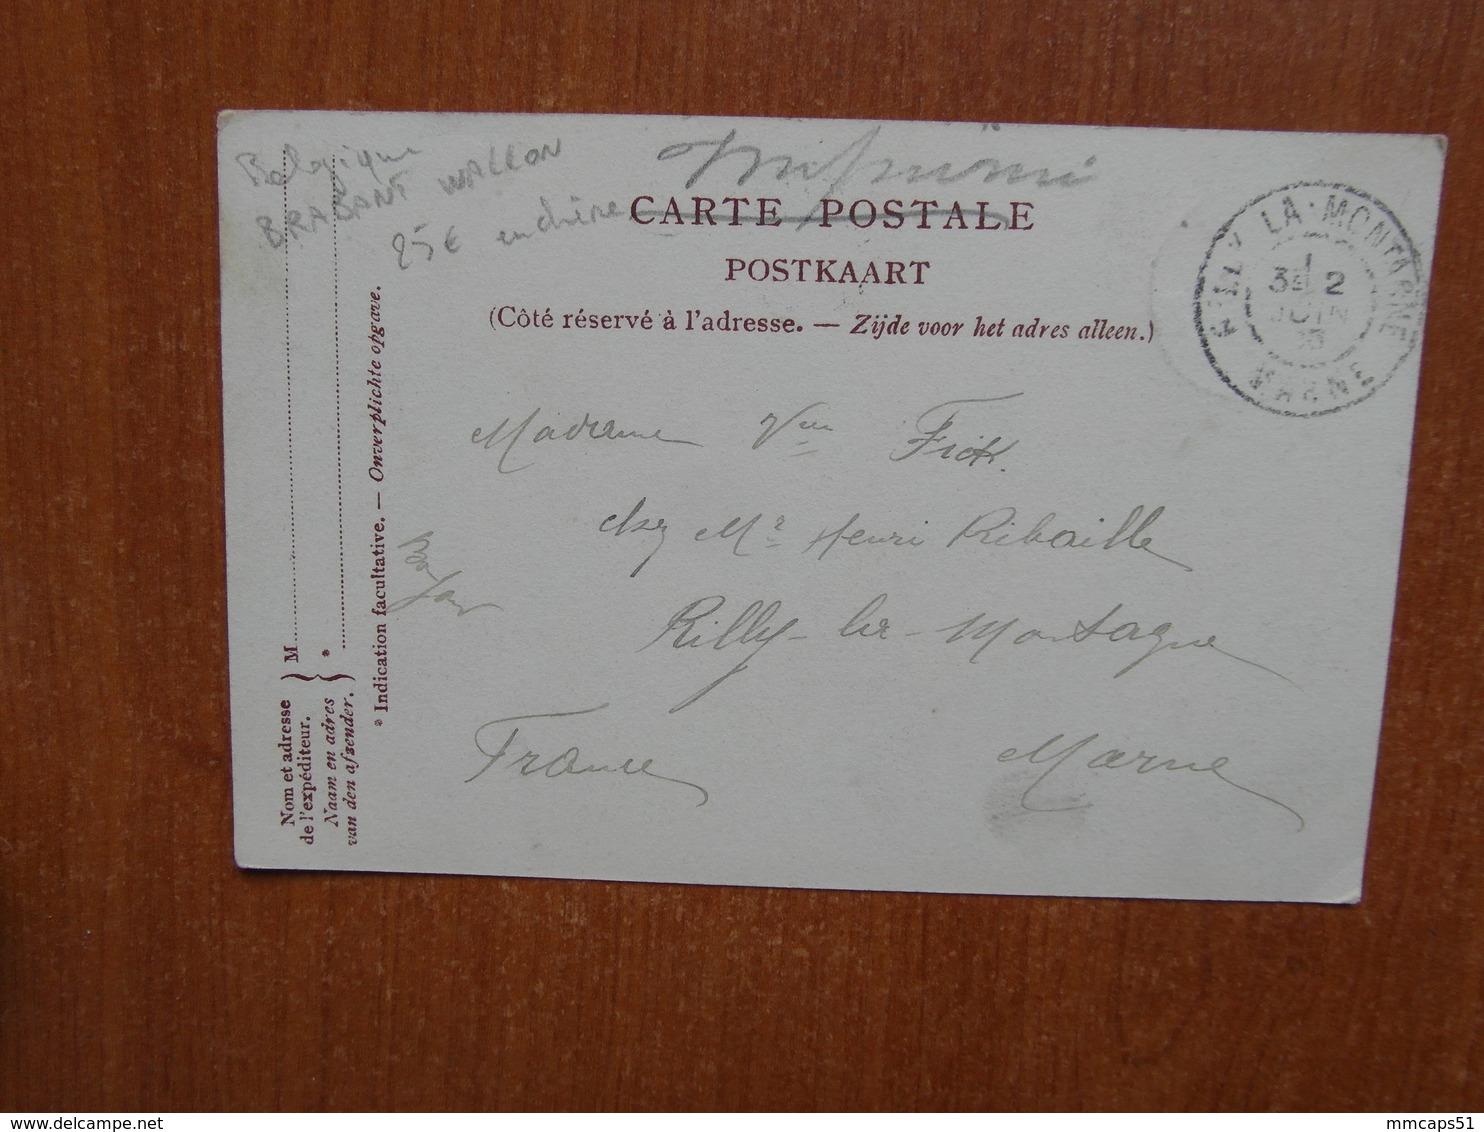 Belgique
BRABANT WALLON
25€ enchère
Imprimé
CARTE POSTALE
POSTKAART
(Côté réservé à l'adresse. — Zijde voor het adres alleen.)
RILLY LA·MONTAGNE
3E 2
JUIN
MARNE
Madame Vve Fick.
chez Mr Henri Ribaille
Rilly-la-Montagne
France Marne
Nom et adresse
de l'expéditeur.
Naam en adres
van den afzender.
M
*
* Indication facultative. — Onverplichte opgave.
delcampe.net
mmcaps51